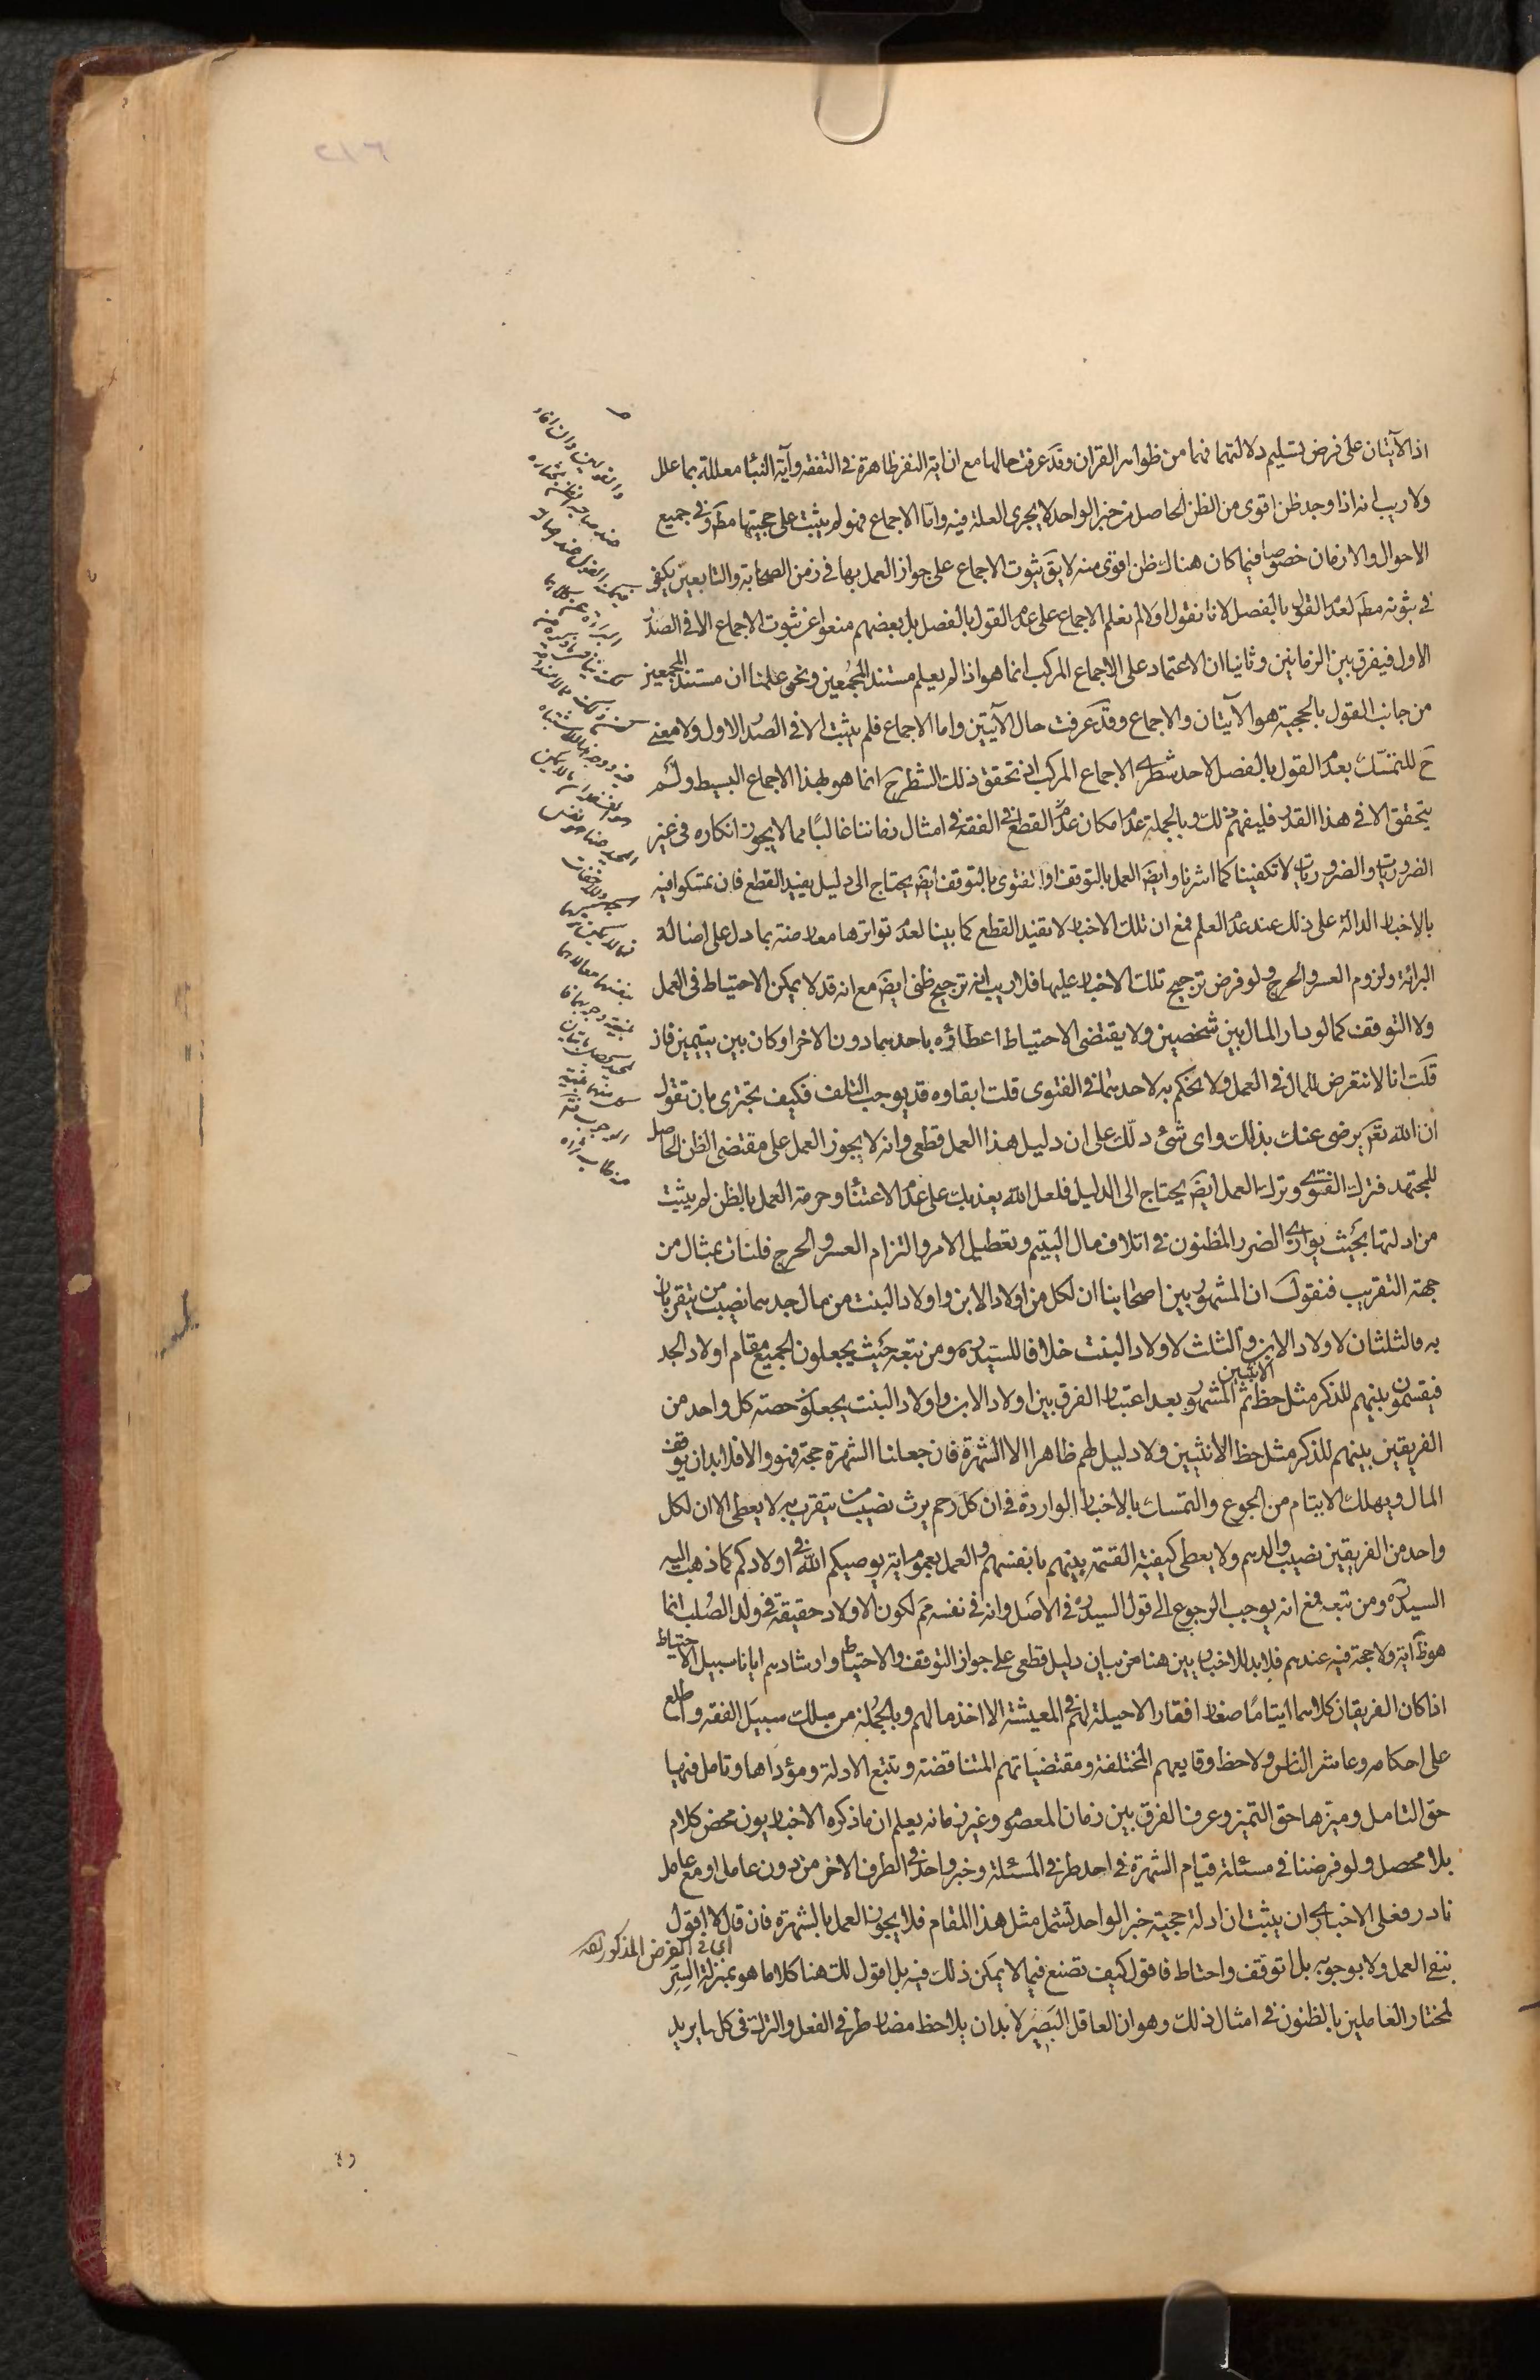 اذ الآيتان على فرض تسليم دلالتهما فهما من ظواهر القران وقد عرفت حالها مع ان اية النفر ظاهرة في التفقه وآية النبأ معللة بما علل
ولا ريب انه اذا وجد ظن اقوى من الظن الحاصل من خبر الواحد لا يجرى العلة فيه واما الاجماع فهو لم يثبت على حجيتها مطَ وفى جميع
الاحوال والازمان خصوصا فيما كان هناك ظن اقوى منه لا يقَ ثبوت الاجماع على جواز العمل بها فى زمن الصحابة والتابعين يكفى
فى ثبوته مطَ لعدم القول بالفصل لانا نقول اولا لم نعلم الاجماع على عدم القول بالفصل بل بعضهم منعوا عن ثبوت الاجماع الا فى الصدر
الاول فيفرق بين الزمانين وثانيا ان الاعتماد على الاجماع المركب انما هو اذا لم يعلم مستند المجمعين ونحن علمنا ان مستند المجمعين
من جانب القول بالحجية هو الآيتان والاجماع وقد عرفت حال الآيتين واما الاجماع فلم يثبت الا فى الصدر الاول ولا معنى
حَ للتمسّك بعدم القول بالفصل لاحد شطرى الاجماع المركب اذ تحقق ذلك الشطر حَ انما هو بهذا الاجماع البسيط ولم
يتحقق الا فى هذا القدر فليفهم ذلك وبالجملة عدم امكان عدم القطع فى الفقه فى امثال زماننا غالبًا مما لا يجوز انكاره فى غير
الضروريات والضروريات لا تكفينا كما اشرنا وايضَ العمل بالتوقف او الفتوى بالتوقف ايضَ يحتاج الى دليل يفيد القطع فان تمسكوا فيه
بالاخبار الدالة على ذلك عند عدم العلم فمع ان تلك الاخبار لا تفيد القطع كما بينا لعدم تواترها معارضة بما دل على اصالة
البرائة ولزوم العسر والحرج ولو فرض ترجيح تلك الاخبار عليها فلا ريب انه ترجيح ظنى ايضَ مع انه قد لا يمكن الاحتياط فى العمل
ولا التوقف كما لو دار المال بين شخصين ولا يقتضى الاحتياط اعطاؤه باحدهما دون الاخر او كان بين يتيمين فان
قلت انا لا نتعرض للمال فى العمل ولا نحكم به لاحدهما فى الفتوى قلت ابقاوه قد يوجب التلف فكيف تجترى بان تقول
ان الله تعَ يرضى عنك بذلك واى شئ دلّك على ان دليل هذا العمل قطعى وانه لا يجوز العمل على مقتضى الظن الحاصل
للمجتهد فترك الفتوى وترك العمل ايضَ يحتاج الى الدليل فلعل الله يعذبك على عدم الاعتنأ وحرمة العمل بالظن لم يثبت
من ادلتها بحيث يوازى الضرر المظنون فى اتلاف مال اليتيم وتعطيل الامر والتزام العسر والحرج فلنات بمثال من
جهة التقريب فنقول ان المشهور بين اصحابنا ان لكل من اولاد الابن واولاد البنت من مال جدهما نصيب من يتقربان
به فالثلثان لاولاد الابن والثلث لاولاد البنت خلافا للسيدره ومن تبعه حيث يجعلون الجميع مقام اولاد الجد
فيقسمون بينهم للذكر مثل حظ الانثيين ثم المشهور بعد اعتبار الفرق بين اولاد الابن واولاد البنت يجعلون حصة كل واحد من
الفريقين بينهم للذكر مثل حظ الانثيين ولا دليل لهم ظاهرا الا الشهرة فان جعلنا الشهرة حجة فهو والا فلابد ان يوقف
المال ويهلك الايتام من الجوع والتمسك بالاخبار الواردة فى ان كل رحم يرث نصيب من يتقرب به لا يعطى الا ان لكل
واحد من الفريقين نصيب والدهم ولا يعطى كيفية القسمة بينهم بانفسهم والعمل بعموم اية يوصيكم الله فى اولادكم كما ذهب اليه
السيدره ومن تبعه فمع انه يوجب الرجوع الى قول السيدره فى الاصل وانه فى نفسه ممَ لكون الاولاد حقيقة فى ولد الصلب انما
هو ظَ آية ولا حجة فيه عندهم فلابد للاخباريين هنا من بيان دليل قطعى على جواز التوقف والاحتياط وارشادهم ايانا سبيل الاحتياط
اذا كان الفريقان كلاهما ايتامًا صغارا فقارا لا حيلة لهم فى المعيشة الا اخذ مالهم وبالجملة من سلك سبيل الفقه واطلع
على احكامه وعاشر الناس ولاحظ وقايعهم المختلفة ومقتضياتهم المتناقضة وتتبع الادلة ومؤداها وتامل فيها
حق التامل وميزها حق التميز وعرف الفرق بين زمان المعصوم وغير زمانه يعلم ان ما ذكره الاخباريون محض كلام
بلا محصل ولو فرضنا فى مسئلة قيام الشهرة فى احد طرفى المسئلة وخبر واحد فى الطرف الاخر من دون عامل او مع عامل
نادر فعلى الاخبارى ان يثبت ان ادلة حجية خبر الواحد تشمل مثل هذا المقام فلا يجوز العمل بالشهرة فان قال لا اقول
اى فى الفرض المذكور
بنفى العمل ولا بوجوبه بل اتوقف واحتاط فاقول كيف تصنع فيما لا يمكن ذلك فيه بل اقول لك هنا كلاما هو بمنزلة السر
لمختار العاملين بالظنون فى امثال ذلك وهو ان العاقل البصير لابد ان يلاحظ مضار طرفى الفعل والترك فى كل ما يريد